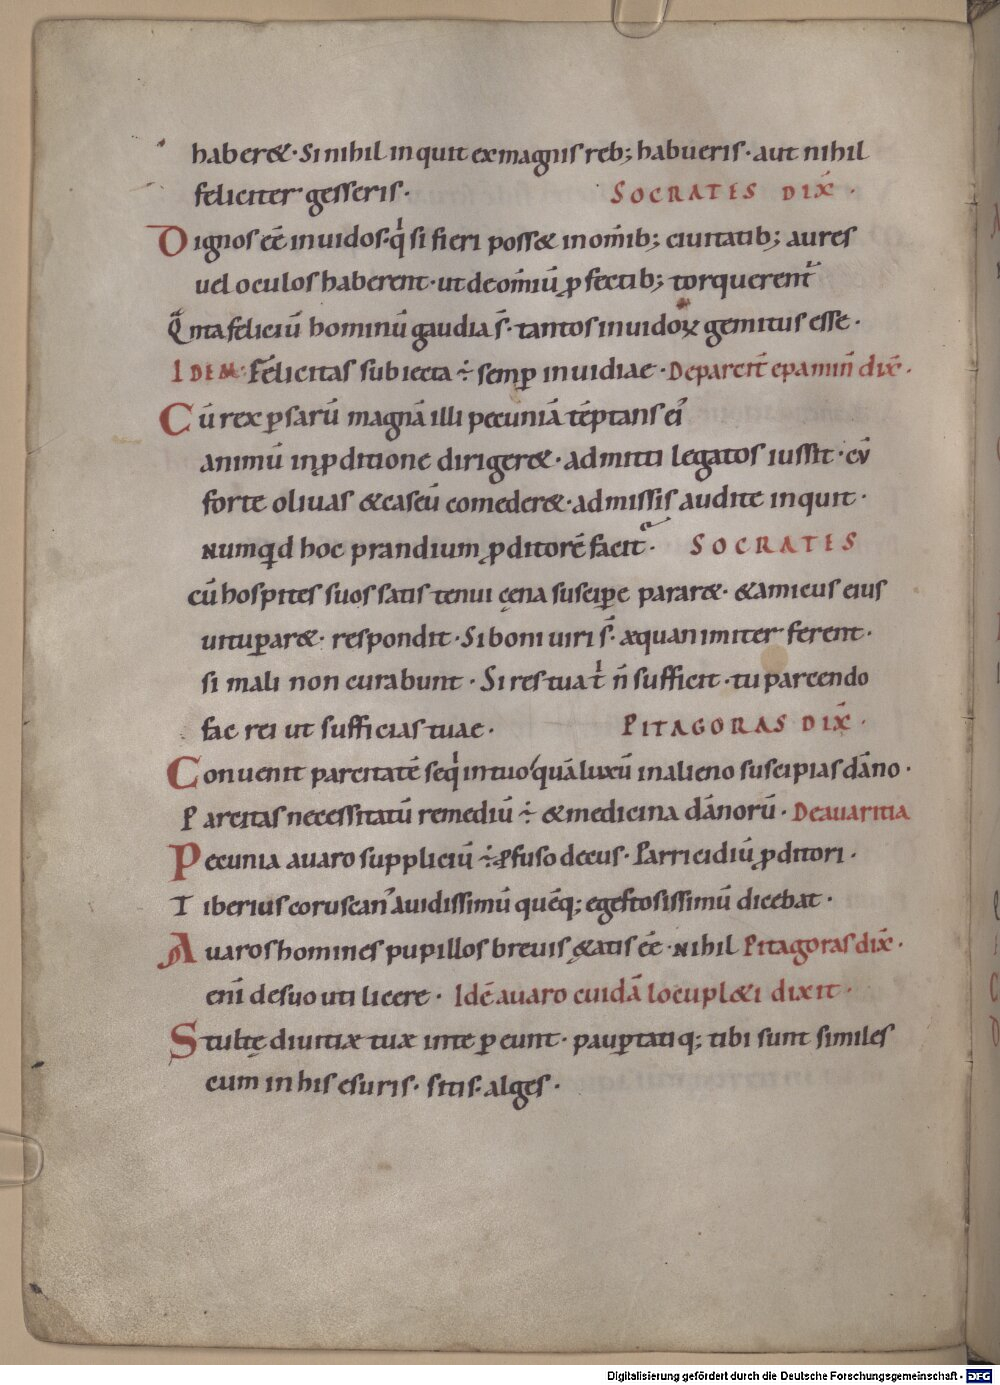 haber&·Si nihil inquit exmagnis reb; habueris·aut nihil
feliciter gesseris· SOCRATES DIX̄·
Dignos ēē inuidos·qͥ si fieri poss& inom̄ib; ciuitatib; aures
uel oculos haberent·ut deom̄iū ꝓfectib; torquerent᷑
Qͣnta feliciū hominū gaudia s̄·tantos inuidoꝝ gemitus esse·
IDEM·Felicitas subiecta ÷ semꝑ inuidiae·Deparcit̄ epamin̄ dix̄·
Cū rex ꝑsarū magnā illi pecuniā tēptans ei᾿
animū inꝓditione diriger&·admitti legatos iussit·cū
forte oliuas &caseū comeder&·admissis audite inquit·
numqͥd hoc prandium ꝓditorē facit᷑· SOCRATES
cū hospites suos satis tenui cęna susciꝑe parar&·&amicus eius
uituꝑar&·respondit·Si boni uiri s̄·æquanimiter ferent·
si mali non curabunt·Si res tua tͥ n̄ sufficit·tu parcendo
fac rei ut sufficias tuae· PITAGORAS DIX̄·
Conuenit parcitatē seqͥ intuo quā luxū inalieno suscipias dāno·
Parcitas necessitatū remediū ÷ &medicina dānorū·Deauaritia
Pecunia auaro suppliciū ÷ ꝓfuso decus·Parricidiū ꝓditori·
Tiberius coruscan᾿ auidissimū quēq; egestosissimū dicebat·
Auaros homines pupillos breuis &atis ēē·nihil Pitagoras dix̄·
eni̅ desuo uti licere· Idē auaro cuidā locupl&i dixit·
Stultę diuitiæ tuæ inte ꝑeunt·pauꝑtatiq; tibi sunt similes
cum in his esuris·sitis·alges·
Digitalisierung gefördert durch die Deutsche Forschungsgemeinschaft - DFG